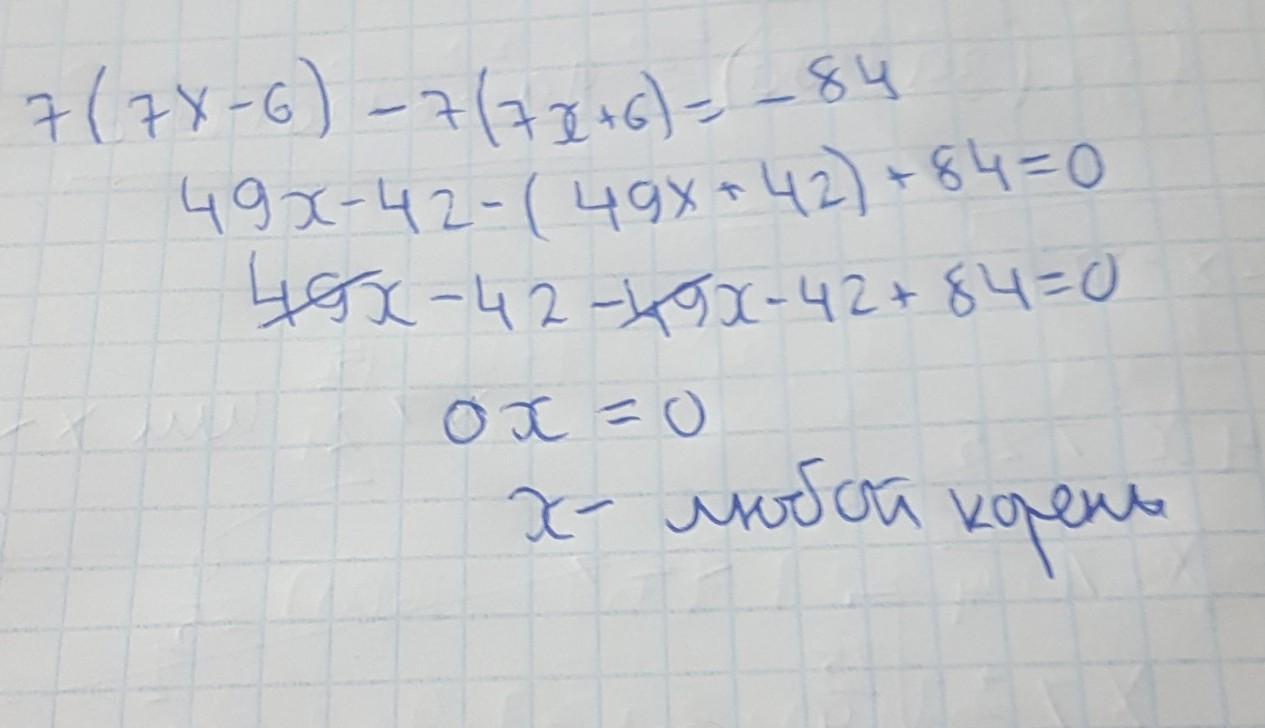 7(7x-6) - 7(7x+6) = -84
49x-42-(49x+42)+84=0
49x-42-49x-42+84=0
0x=0
x- любой корень